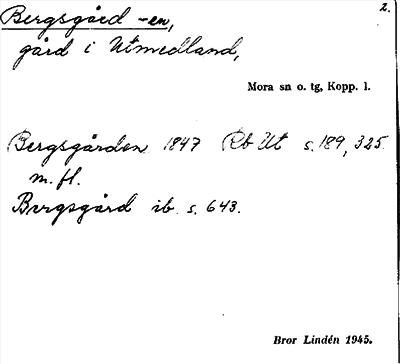 2.
Bergsgård -en,
gård i Utmedland,
Mora sn o. tg, Kopp. l.
Bergsgården 1847 Rb Ut s. 189, 325
m. fl.
Bergsgård ib. s. 643.
Bror Lindén 1945.